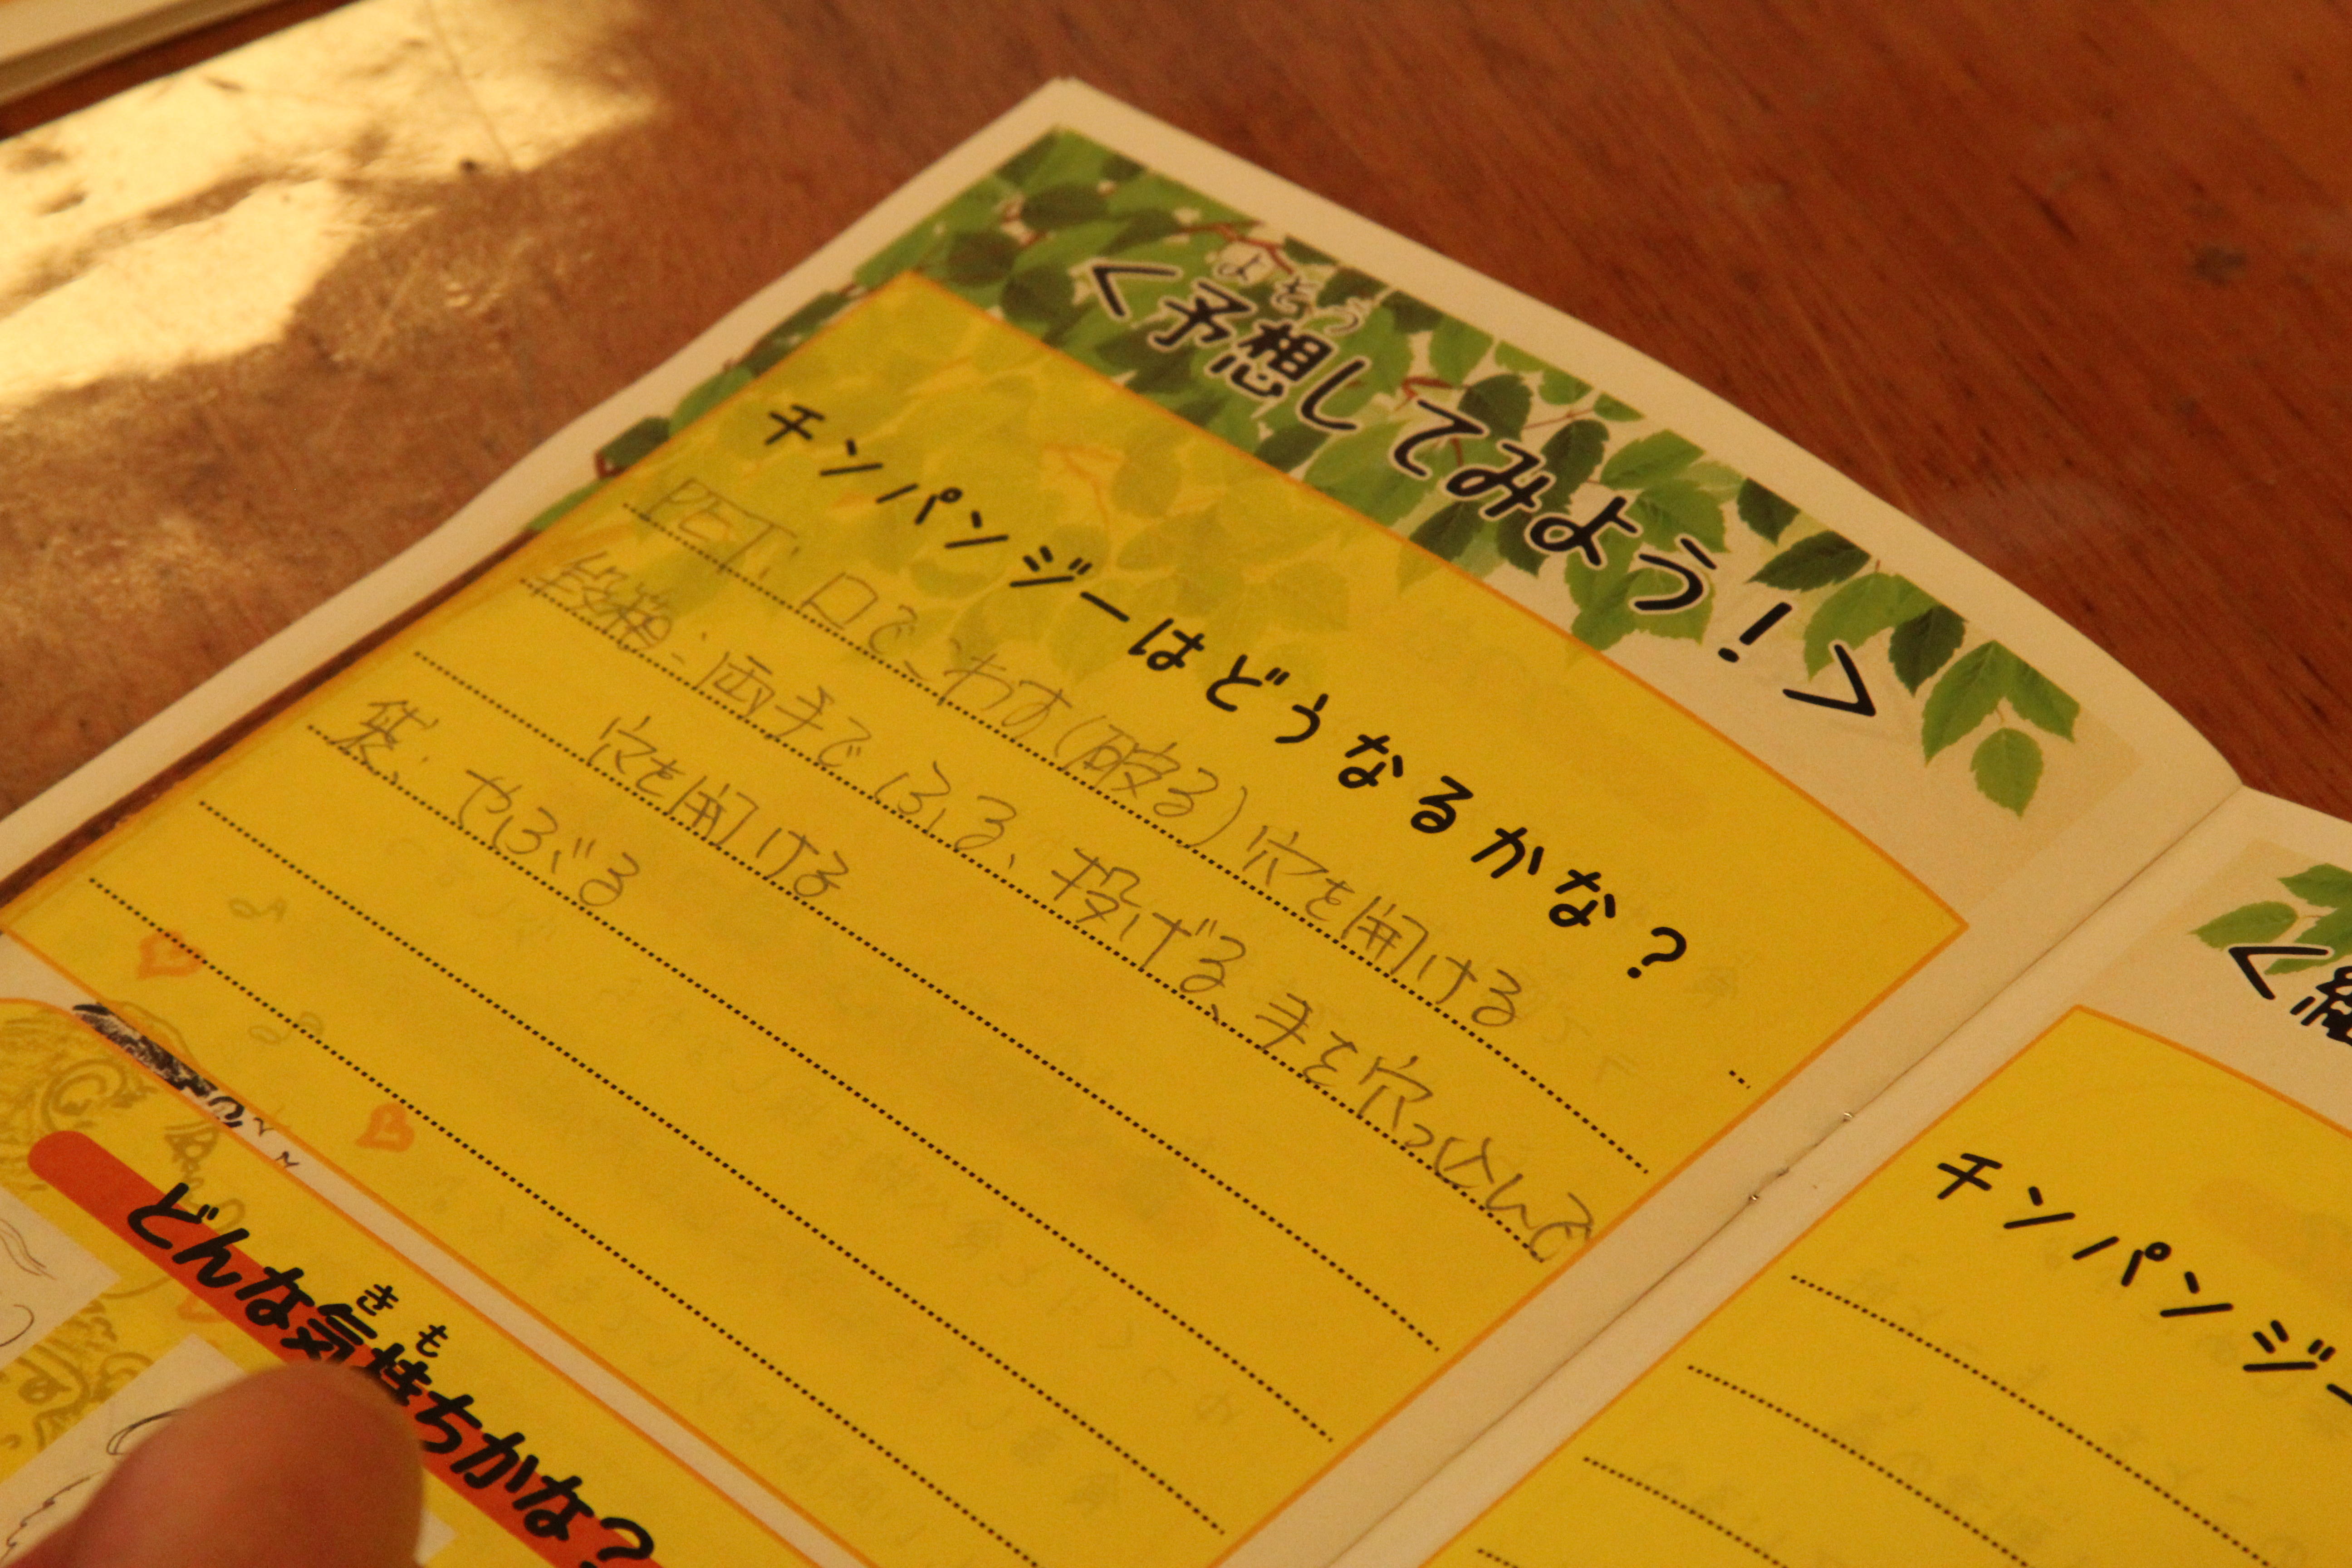 よそう
＜予想してみよう！＞
チンパンジーはどうなるかな？
PET. 口でこわす(破る)穴を開ける
段箱. 両手でふる、投げる、手を穴っ込んで
穴を開ける
袋. やぶる
きも
どんな気持ちかな？
＜
チンパンジー